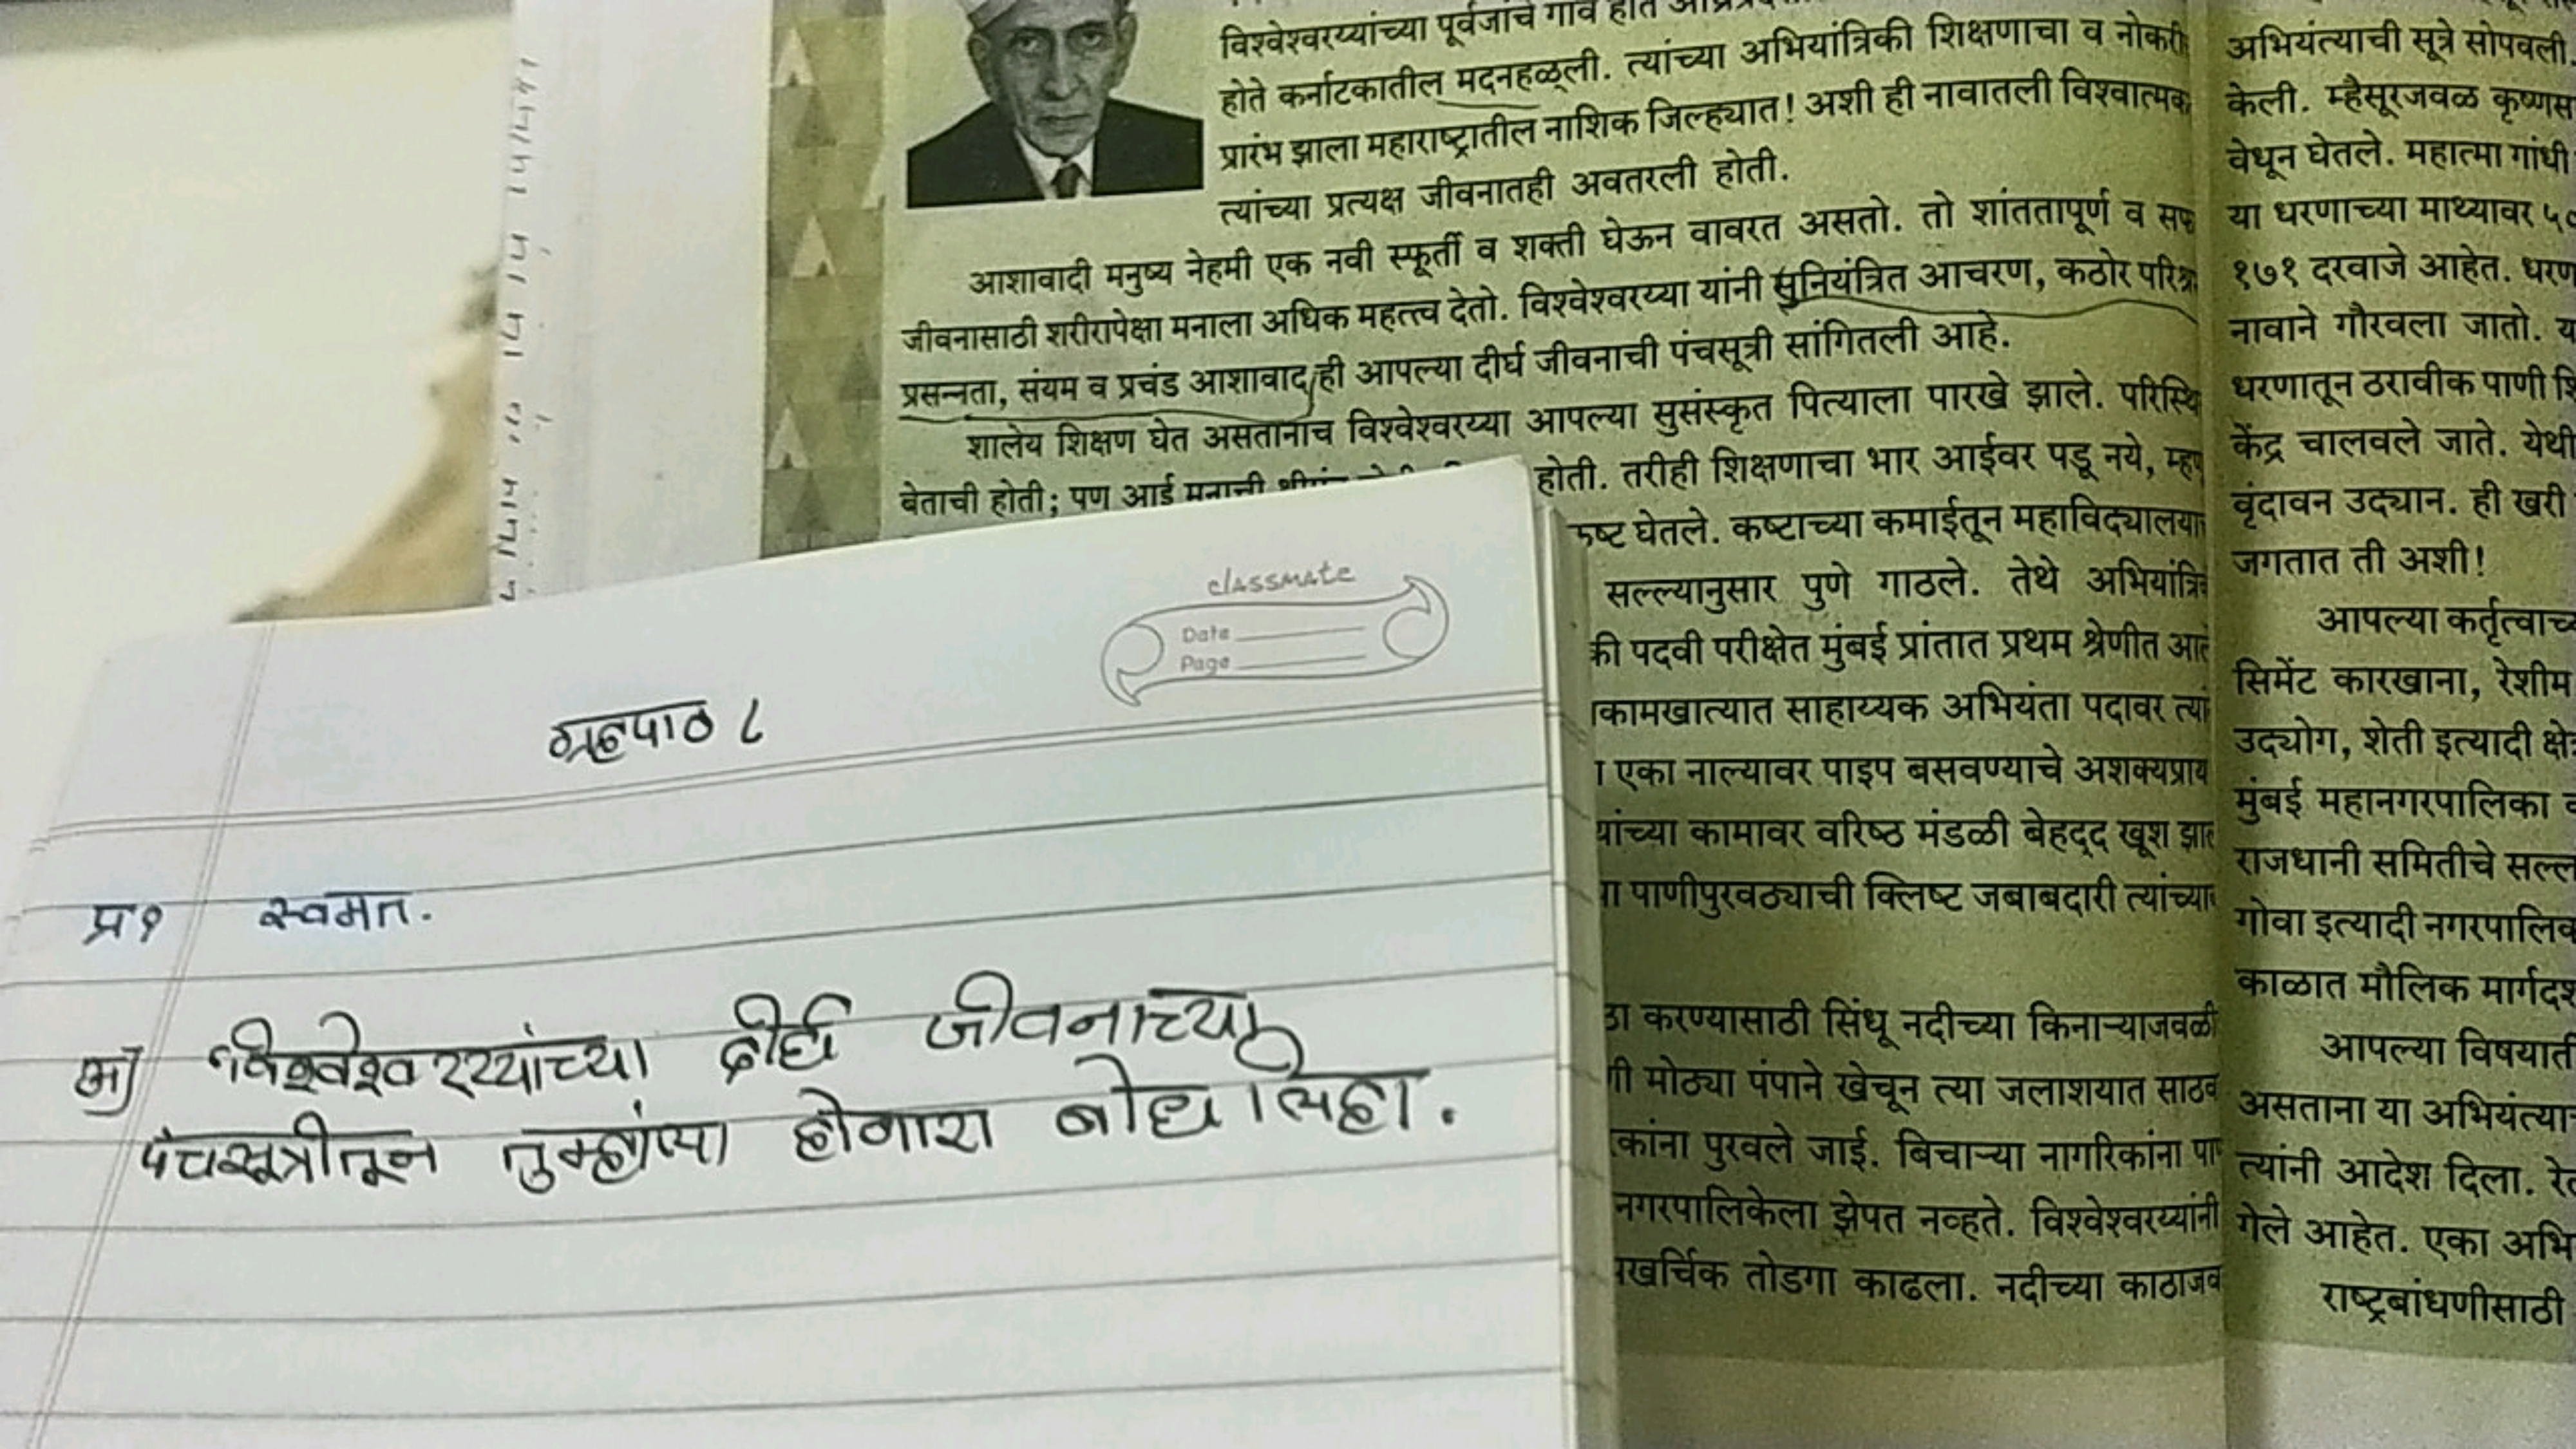 विश्वेश्वरय्यांच्या पूर्वजांचे गाव होते
होते कर्नाटकातील मदनहळ्ली. त्यांच्या अभियांत्रिकी शिक्षणाचा व नोकरी
प्रारंभ झाला महाराष्ट्रातील नाशिक जिल्ह्यात! अशी ही नावातली विश्वात्मक
त्यांच्या प्रत्यक्ष जीवनातही अवतरली होती.
आशावादी मनुष्य नेहमी एक नवी स्फूर्ती व शक्ती घेऊन वावरत असतो. तो शांततापूर्ण व
जीवनासाठी शरीरापेक्षा मनाला अधिक महत्त्व देतो. विश्वेश्वरय्या यांनी सुनियंत्रित आचरण, कठोर
प्रसन्नता, संयम व प्रचंड आशावाद ही आपल्या दीर्घ जीवनाची पंचसूत्री सांगितली आहे.
शालेय शिक्षण घेत असतानाच विश्वेश्वरय्या आपल्या सुसंस्कृत पित्याला पारखे झाले.
बेताची होती; पण आई मनाची होती. तरीही शिक्षणाचा भार आईवर पडू नये,
घेतले. कष्टाच्या कमाईतून
सल्ल्यानुसार पुणे गाठले. तेथे
की पदवी परीक्षेत मुंबई प्रांतात प्रथम श्रेणीत
साहाय्यक अभियंता पदावर
एका नाल्यावर पाइप बसवण्याचे अशक्यप्राय
यांच्या कामावर वरिष्ठ मंडळी बेहद्द खूश
पाणीपुरवठ्याची क्लिष्ट जबाबदारी
करण्यासाठी सिंधू नदीच्या किनाऱ्याजवळी
मोठ्या पंपाने खेचून त्या जलाशयात
पुरवले जाई. बिचाऱ्या नागरिकांना
नगरपालिकेला झेपत नव्हते. विश्वेश्वरय्यांनी
तोडगा काढला. नदीच्या
अभियंत्याची सूत्रे सोपवली.
केली. म्हैसूरजवळ
वेधून घेतले. महात्मा गांधी
या धरणाच्या माथ्यावर
१७१ दरवाजे आहेत.
नावाने गौरवला जातो.
धरणातून ठरावीक पाणी
केंद्र चालवले जाते.
वृंदावन उद्यान. ही खरी
जगतात ती अशी!
आपल्या
सिमेंट कारखाना, रेशीम
उद्योग, शेती इत्यादी
मुंबई महानगरपालिका
राजधानी समितीचे
गोवा इत्यादी
काळात मौलिक
आपल्या
असताना या
त्यांनी आदेश दिला.
गेले आहेत. एका
राष्ट्रबांधणीसाठी
classmate
Date
Page
ग्रहपाठ ८
प्र१ स्वमत.
अ) विश्वेश्वरय्यांच्या दीर्घ जीवनाच्या
पंचसूत्रीतून तुम्हांला होणारा बोध लिहा.